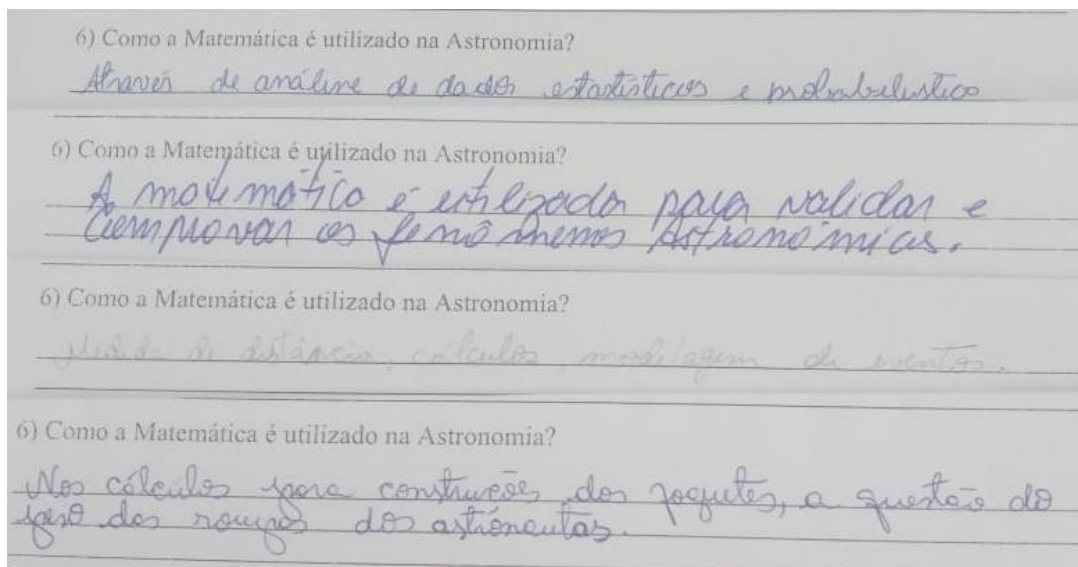 6) Como a Matemática é utilizado na Astronomia?
Através de análise de dados estastísticos e probabilustico
6) Como a Matemática é utilizado na Astronomia?
A matemática é utilizada para validar e
Comprovar os fenômenos Astronômicos.
6) Como a Matemática é utilizado na Astronomia?
Medida de distância, cálculos, modelagem de eventos.
6) Como a Matemática é utilizado na Astronomia?
Nos cálculos para construções dos foguetes, a questão do
peso das roupas dos astronautas.